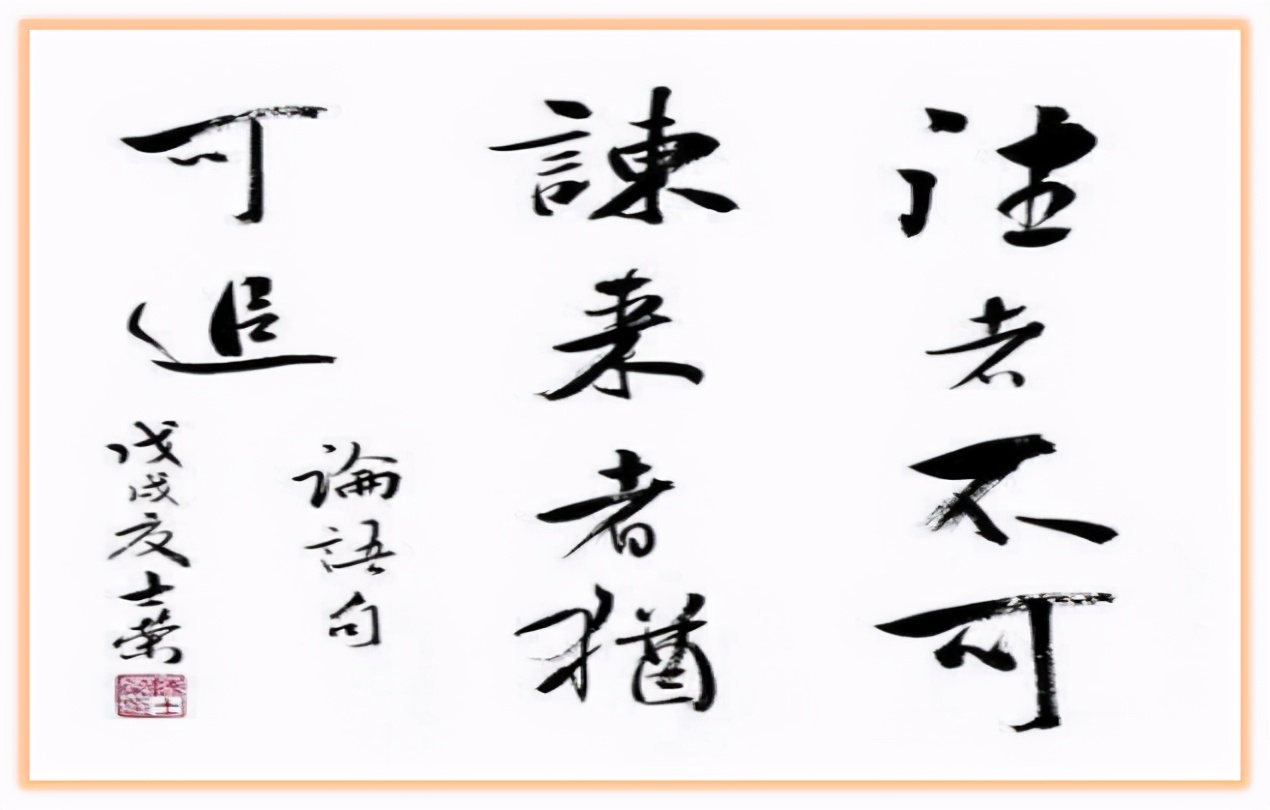 往者不可
諫来者猶
可追
論語句
戊戌夏士荣